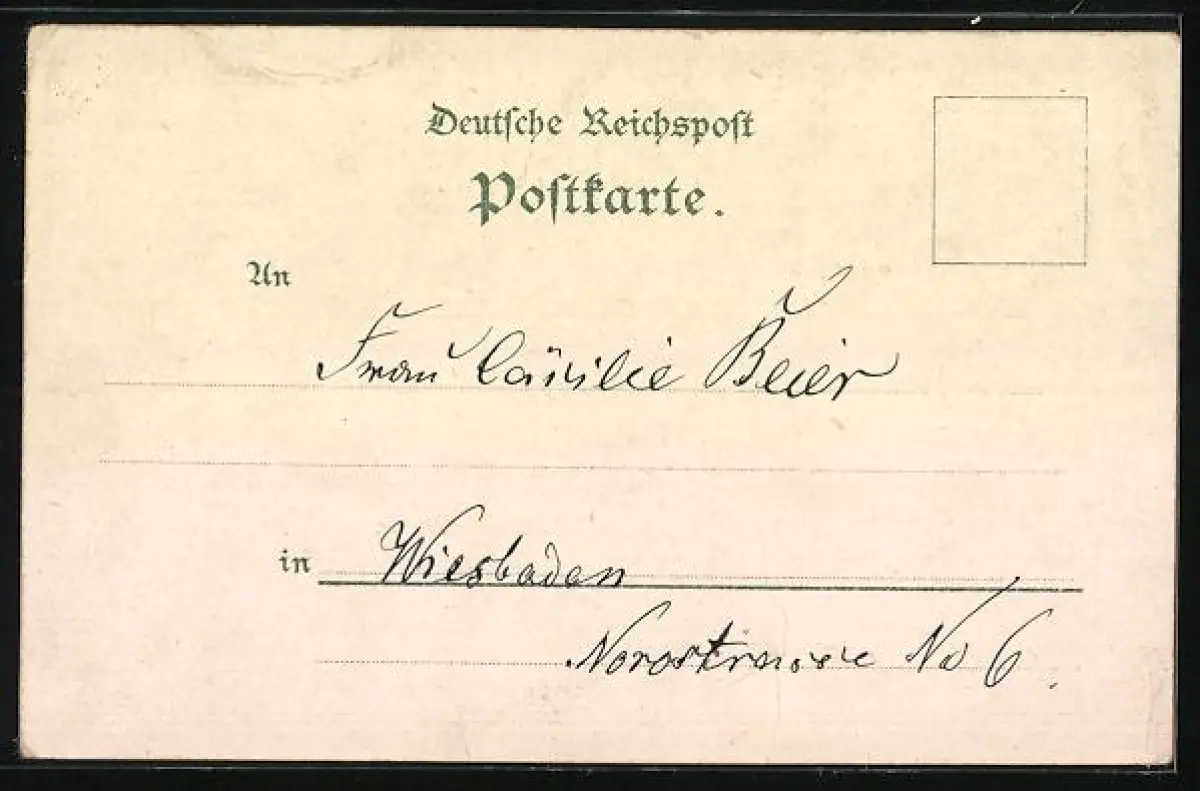 Deutsche Reichspost
Postkarte.
An
Frau Cäcilie Beier
in Wiesbaden
No 6.